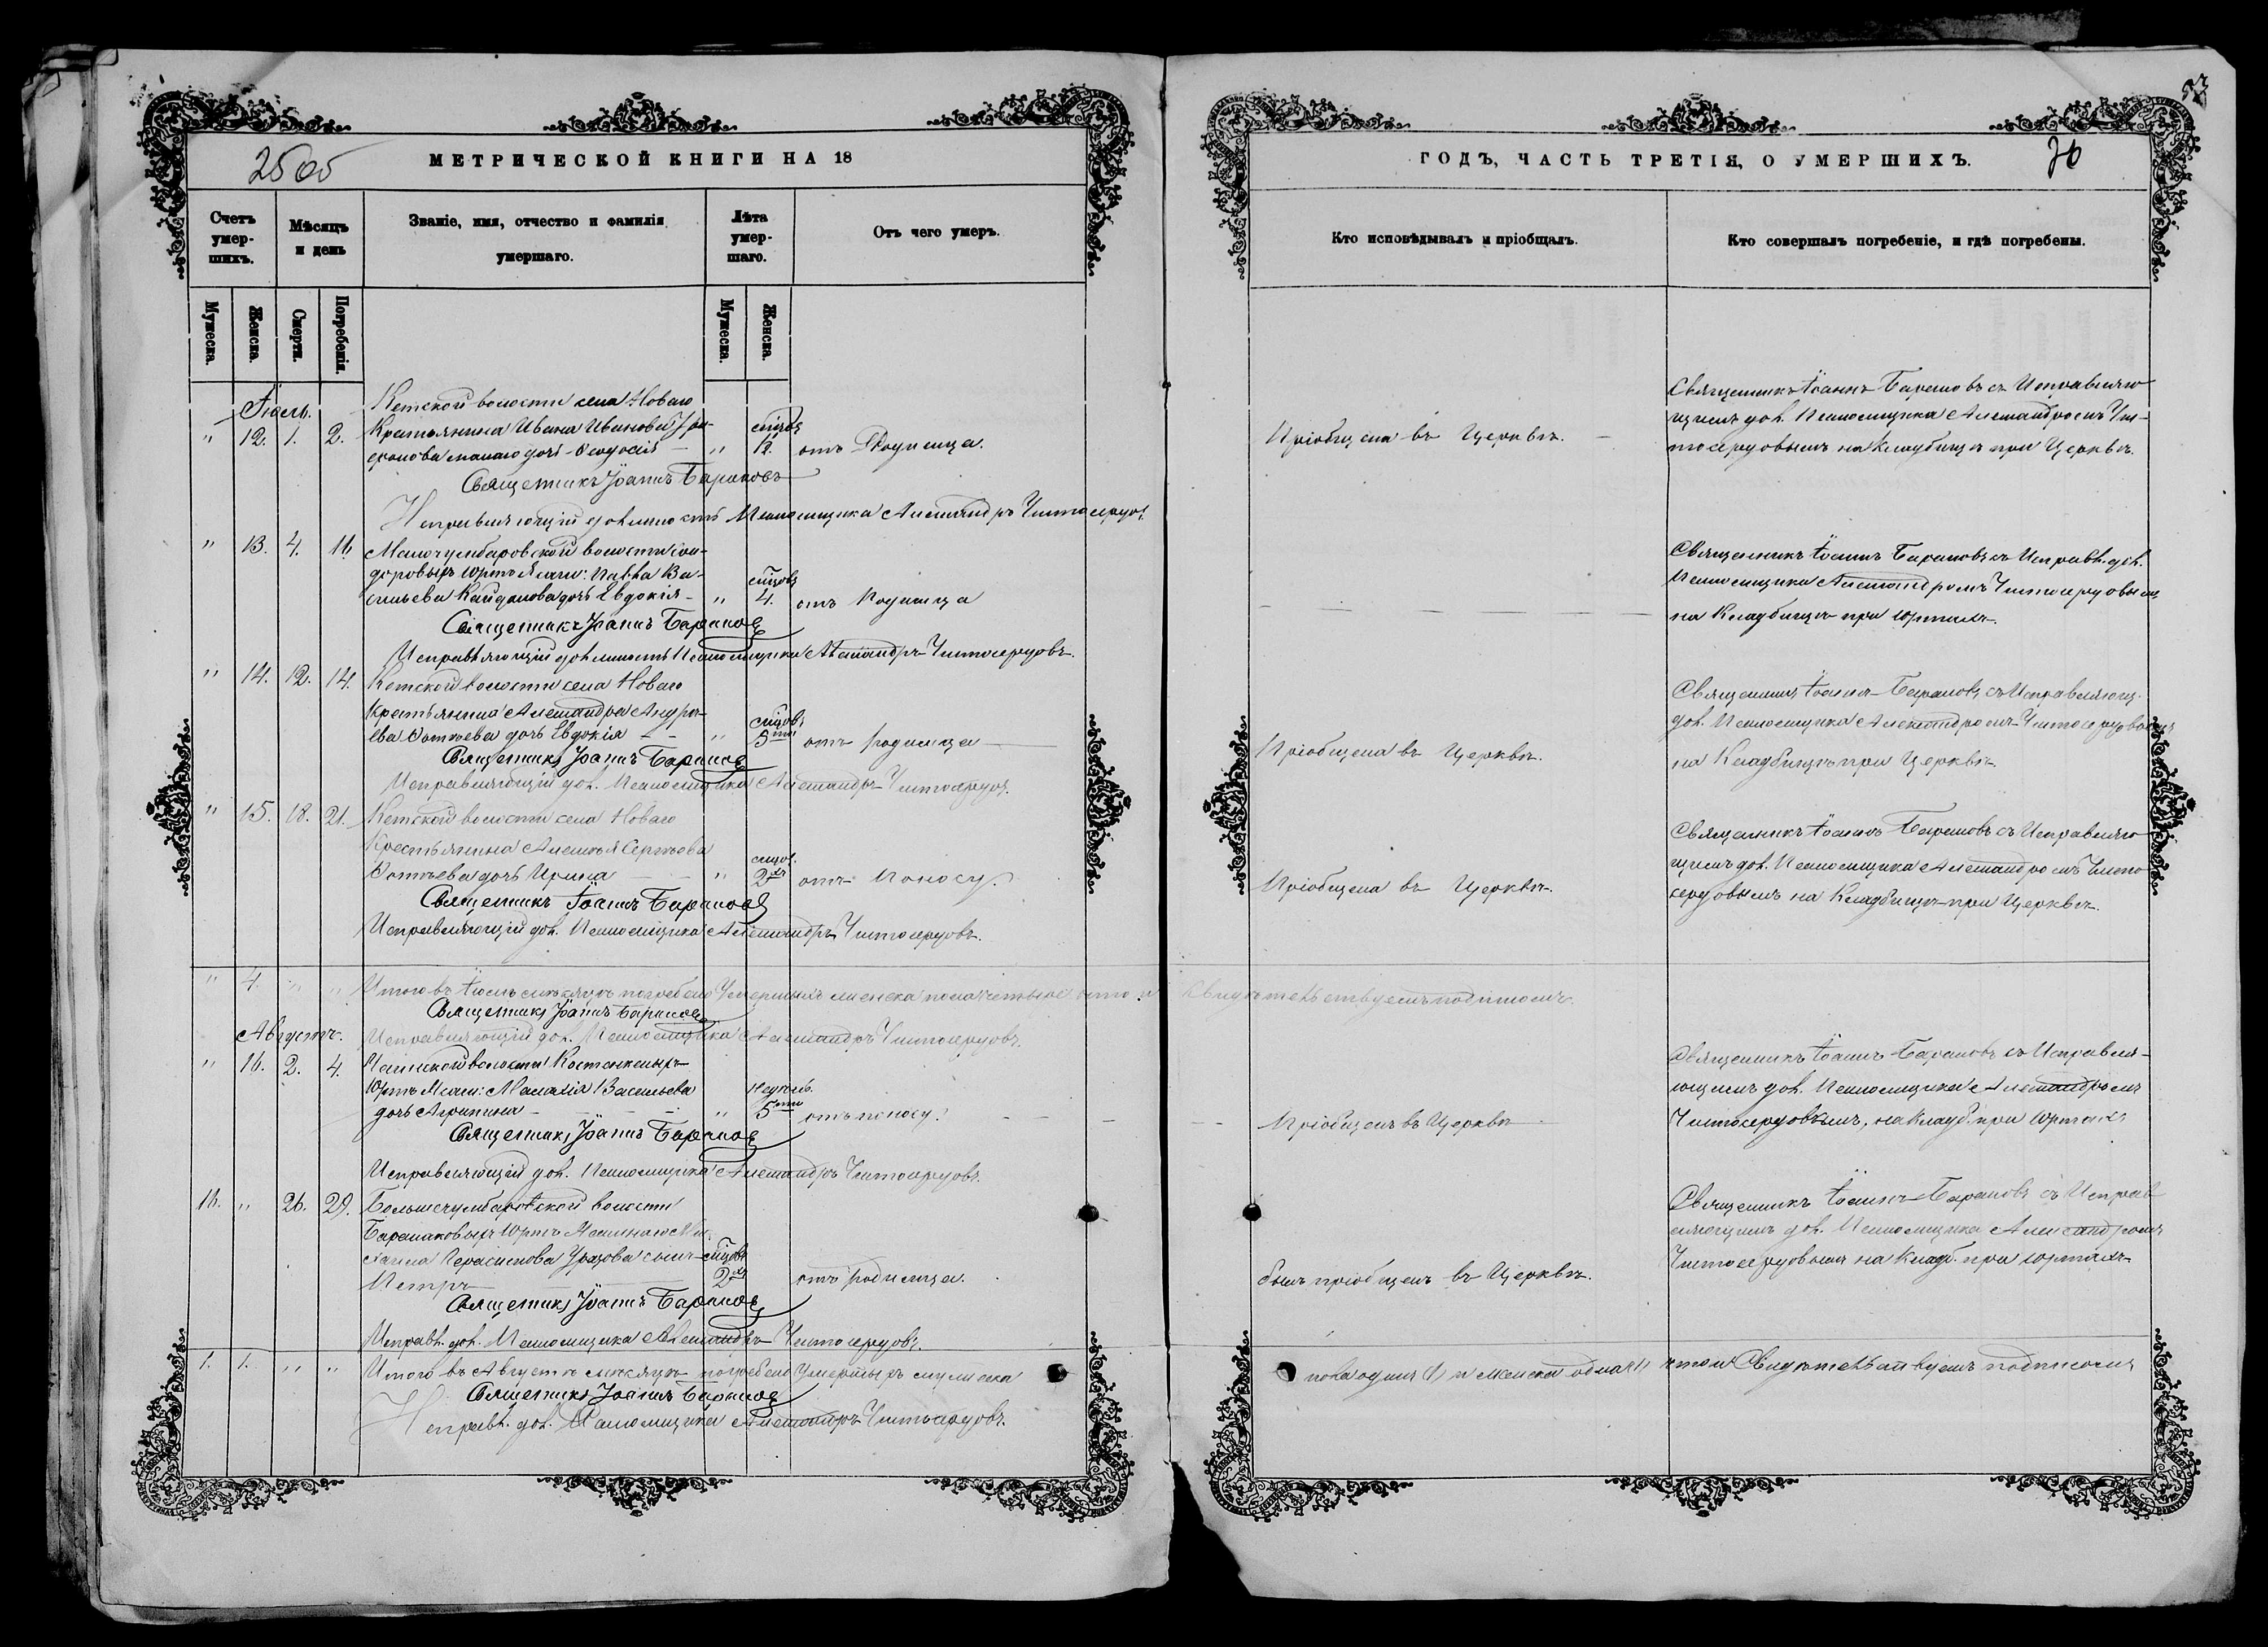 2505
МЕТРИЧЕСКОЙ КНИГИ НА 18
Счетъ умер-
шихъ.
Мѣсяцъ
и день
Званіе, имя, отчество и фамилія
умершаго.
Лѣта
умер-
шаго.
Отъ чего умеръ.
Мужеска.
Женска.
Смерти.
Погребенія.
Мужеска.
Женска.
Іюль.
Кетской волости села Новаго
" 12. 1. 2. Крестьянина Ивана Иванова
дочь Ѳеодосія " 12. отъ Родимца.
Священникъ Іоаннъ Барановъ
Исправляющій должность Псаломщика Александръ Чистосердовъ
" 13. 4. 11. Малочумбаровской волости
юртъ Ясачн: Павла Ва-
сильева Кайдалова дочь Евдокія – " 4. отъ Родимца
Священникъ Іоаннъ Барановъ
Исправляющій должность Псаломщика Александръ Чистосердовъ.
" 14. 12. 14. Кетской волости села Новаго
Крестьянина Александра Андре-
ева Фотѣева дочь Евдокія – " 5ти отъ родимца
Священникъ Іоаннъ Барановъ
Исправляющій дол. Псаломщика Александръ Чистосердовъ.
" 15. 18. 21. Кетской волости села Новаго
Крестьянина Алексѣя Сергѣева
Фотѣева дочь Ирина " 2хъ отъ Поносу.
Священникъ Іоаннъ Барановъ
Исправляющій дол. Псаломщика Александръ Чистосердовъ.
" 4. " " Итого въ Іюлѣ мѣсяцѣ погребено Умершихъ женска пола четыре
Священникъ Іоаннъ Барановъ
Августъ.
Исправляющій дол. Псаломщика Александръ Чистосердовъ.
" 16. 2. 4. волости
Юртъ Ясачн: Васильева недѣль.
дочь Агрипина – " 5ти отъ поносу.
Священникъ Іоаннъ Барановъ
Исправляющій дол. Псаломщика Александръ Чистосердовъ.
" 26. 29. Большечумбаровской волости
юртъ
Герасимова сынъ
Петръ 2хъ отъ родимца.
Священникъ Іоаннъ Барановъ
Исправл. дол. Псаломщика Александръ Чистосердовъ.
1. 1. " " Итого въ Августѣ мѣсяцѣ погребено Умершихъ мужеска
Священникъ Іоаннъ Барановъ
Исправл. дол. Псаломщика Александръ Чистосердовъ.
ГОДЪ, ЧАСТЬ ТРЕТІЯ, О УМЕРШИХЪ.
Кто исповѣдывалъ и пріобщалъ.
Кто совершалъ погребеніе, и гдѣ погребены.
Пріобщена въ Церкви.
Священникъ Іоаннъ Барановъ съ Исправляю-
щимъ дол. Псаломщика Александромъ Чис-
тосердовымъ на Кладбищѣ при Церкви.
Священникъ Іоаннъ Барановъ съ Исправл. дол.
Псаломщика Александромъ Чистосердовымъ
на Кладбищѣ при юртахъ.
Пріобщена въ Церкви.
Священникъ Іоаннъ Барановъ съ Исправляющ.
дол. Псаломщика Александромъ Чистосердовымъ
на Кладбищѣ при Церкви
Пріобщена въ Церкви.
Священникъ Іоаннъ Барановъ съ Исправляю-
щимъ дол. Псаломщика Александромъ Чисто-
сердовымъ на Кладбищѣ при Церкви.
Свидѣтельствуемъ подписомъ.
Пріобщенъ въ Церкви
Священникъ Іоаннъ Барановъ съ Исправля-
ющимъ дол. Псаломщика Александромъ
Чистосердовымъ, на Кладб. при Юртахъ
былъ пріобщенъ въ Церкви.
Священникъ Іоаннъ Барановъ съ Исправ-
ляющимъ дол. Псаломщика Александромъ
Чистосердовымъ на Кладб. при юртахъ
пола одинъ (1) и женска одна (1) что и Свидѣтельствуемъ подписомъ